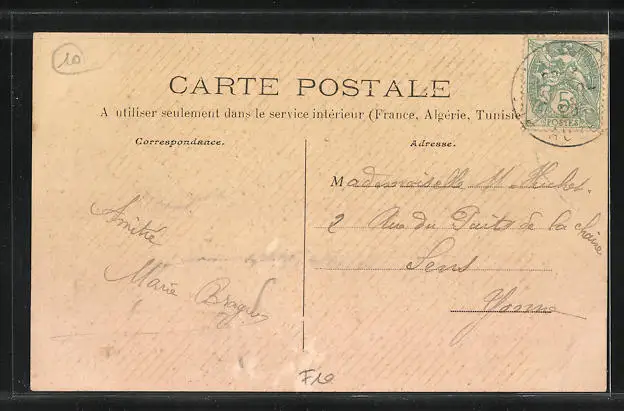 10
CARTE POSTALE
A utiliser seulement dans le service intérieur (France, Algérie, Tunisie
Correspondance.
Adresse.
Mademoiselle M Michel.
2 Rue du Puits de la chaîne
Sens
Yonne
Amitié
Marie
5
POSTES
F10